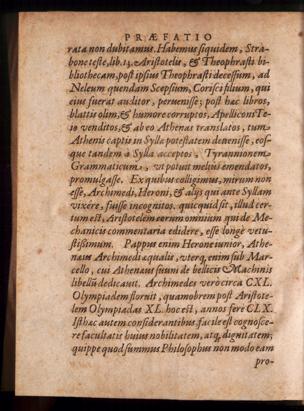 PRÆFATIO
rata non dubitamus. Habemus siquidem, Stra-
bone teste, lib. 13. Aristotelis, & Theophrasti bi-
bliothecam, post ipsius Theophrasti decessum, ad
Neleum quendam Scepsium, Corisci filium, qui
eius fuerat auditor, peruenisse; post hæc libros,
blattis olim, & humore corruptos, Apelliconi Te-
io venditos, & ab eo Athenas translatos, tum
Athenis captis in Syllæ potestatem deuenisse, eos-
que tandem à Sylla acceptos, Tyrannionem
Grammaticum, vt potuit melius emendatos,
promulgasse. Ex quibus colligimus, mirum non
esse, Archimedi, Heroni, & alijs qui ante Syllam
vixere, fuisse incognitos. quicquid sit, illud cer-
tum est, Aristotelem eorum omnium qui de Me-
chanicis commentaria edidere, esse longè vetu-
stissimum. Pappus enim Herone iunior, Athe-
næus Archimedi æqualis, vterq. enim sub Mar-
cello, cui Athenæus suum de bellicis Machinis
libellũ dedicauit. Archimedes verò circa CXL.
Olympiadem floruit, quamobrem post Aristote-
lem Olympiadas XL. hoc est, annos ferè CLX.
Isthæc autem considerantibus facile est cognosce-
re facultatis huius nobilitatem, atq. dignitatem;
quippe quod summus Philosophus non modò eam
pro-